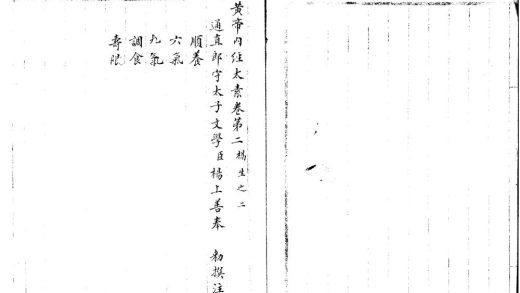 黄帝内経太素卷第二 攝生之二
通直郎守太子文學臣楊上善奉 勅撰注
順養
六氣
九氣
調食
壽限